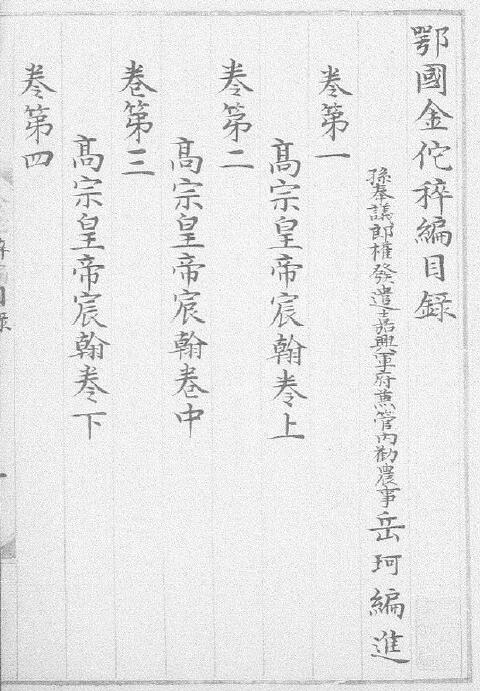 鄂國金佗稡編目録
孫奉議郎權發遣嘉興軍府兼管内勸農事岳珂編進
卷第一
高宗皇帝宸翰卷上
卷第二
高宗皇帝宸翰卷中
卷第三
高宗皇帝宸翰卷下
卷第四